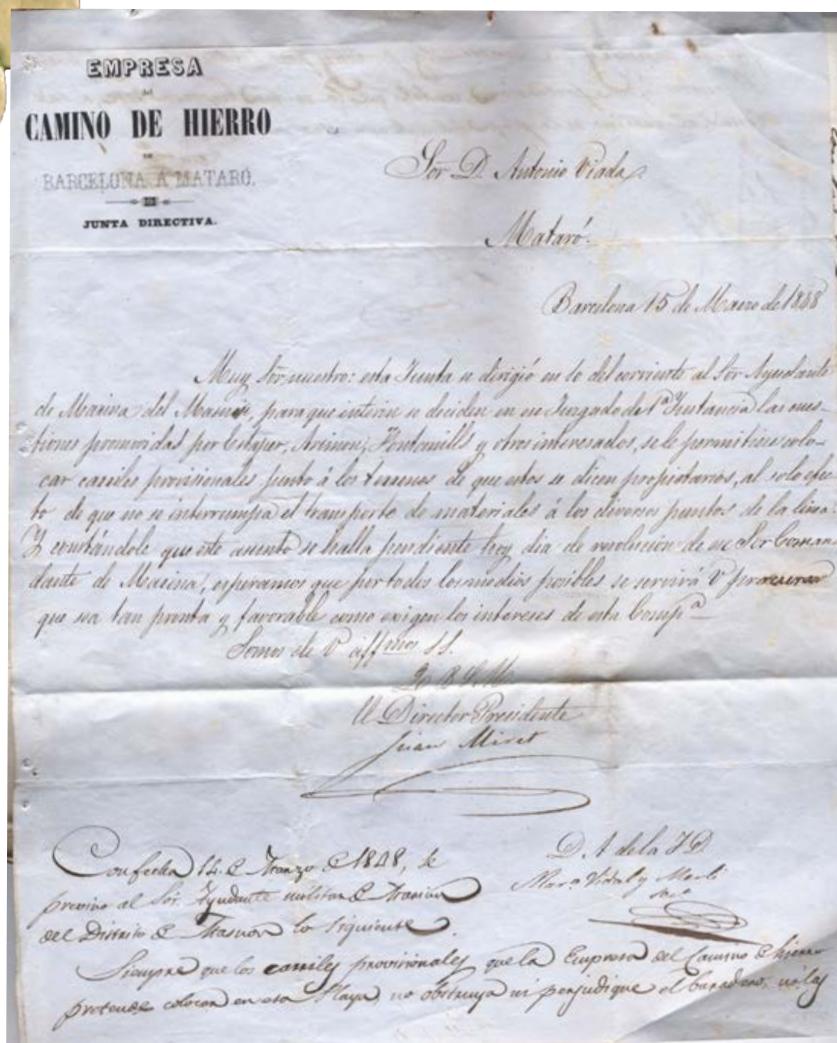 EMPRESA
DEL
CAMINO DE HIERRO
DE
BARCELONA A MATARÓ.
JUNTA DIRECTIVA.
Sor. D. Antonio Viada
Mataró.
Barcelona 15 de Marzo de 1848
Muy Sor. nuestro: esta Junta se dirigió en 10 del corriente al Sor Ayudante
de Marina del Masnou, para que interin se deciden en ese Juzgado de 1ª Instancia las cues-
tiones promovidas por Estaper, Arimon, Fontanills y otros interesados, se le permitiese colo-
car carriles provisionales junto á los terrenos de que estos se dicen propietarios, al solo efec-
to de que no se interrumpa el transporte de materiales á los diversos puntos de la linea.
Y constándole que este asunto se halla pendiente hoy dia de resolucion de ese Sor Coman-
dante de Marina, esperamos que por todos los medios posibles se servirá V procurar
que sea tan pronta y favorable como exigen los intereses de esta Compª
Somos de V affmos SS.
Q. B. S. M.
El Director Presidente
Juan Miret
D. A de la J D
Vidal y Merli
Con fecha 14 de Marzo de 1848, se
previno al Sor. Ayudante militar de Marina
del Distrito de Masnou lo siguiente.
Siempre que los carriles provisionales que la Empresa del Camino de hierro
pretende colocar en esa Playa, no obstruya ni perjudique el baradero, no las